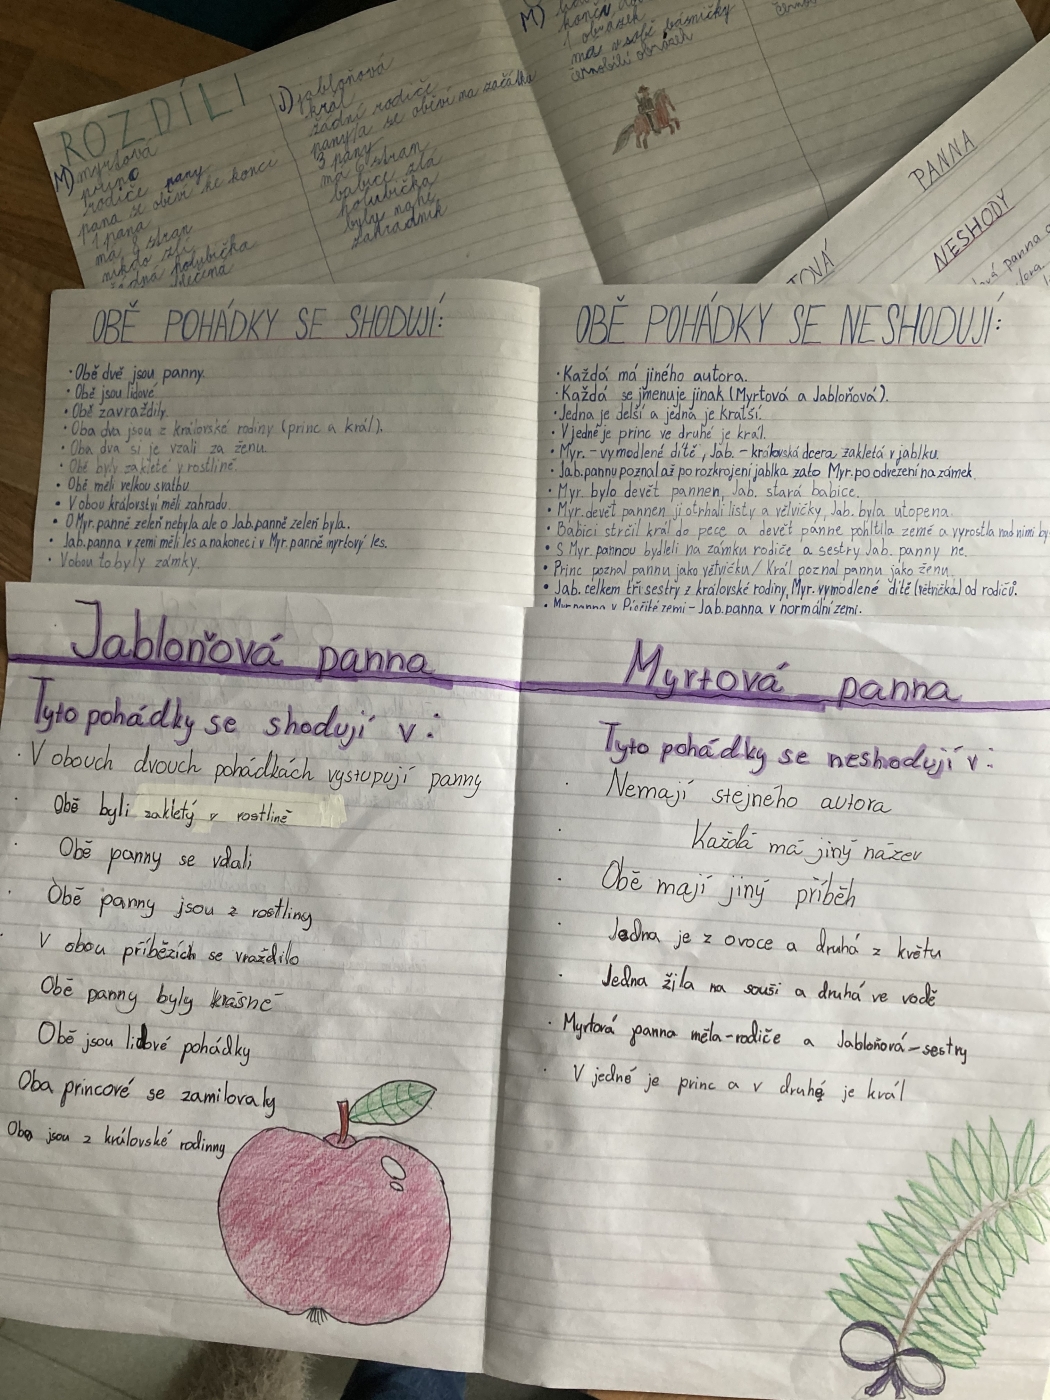 ROZDÍLI
M) myrtová
princ
rodiče pany
pana se oběví ke konci
1 pana
má 8 stran
nikdo zlí
žádná holubička
J) jabloňová
král
žádní rodiče
pany/a se oběví na začátku
3 pany
má 6 stran
babice zlá
holubička
byly nahé
zahradník
M)
1 obrázek
má v sobě básničky
černobílí obrázek
PANNA
NESHODY
OBĚ POHÁDKY SE SHODUJÍ:
• Obě dvě jsou panny.
• Obě jsou lidové.
• Obě zavraždily.
• Oba dva jsou z královské rodiny (princ a král).
• Oba dva si je vzali za ženu.
• Obě byly zakleté v rostlině.
• Obě měli velkou svatbu.
• V obou království měli zahradu.
• O Myr. panně zeleň nebyla ale o Jab. panně zeleň byla.
• Jab. panna v zemi měli les a nakoneci v Myr. panně myrtový les.
• V obou to byly zámky.
OBĚ POHÁDKY SE NESHODUJÍ:
• Každá má jiného autora.
• Každá se jmenuje jinak (Myrtová a Jabloňová).
• Jedna je delší a jedna je kratší.
• V jedné je princ ve druhé je král.
• Myr. - vymodlené dítě, Jab. - královská dcera zakletá v jablku.
• Jab. pannu poznal až po rozkrojení jablka zato Myr. po odvežení na zámek.
• Myr. bylo devět pannen, Jab. stará babice.
• Myr. devět pannen jí otrhali listy a větvičky, Jab. byla utopena.
• Babici strčil král do pece a devět panne pohltila země a vyrostla nad nimi
• S Myr. pannou bydleli na zámku rodiče a sestry Jab. panny ne.
• Princ poznal pannu jako větvičku / Král poznal pannu jako ženu.
• Jab. celkem tři sestry z královské rodiny, Myr. vymodlené dítě (větvička) od rodičů.
• Myr. panna v Písčité zemi - Jab. panna v normální zemi.
Jabloňová panna
Tyto pohádky se shodují v:
· V obouch dvouch pohádkách vystupují panny
· Obě byli zakletý v rostlině
· Obě panny se vdali
· Obě panny jsou z rostliny
· V obou příbězích se vraždilo
Obě panny byly krásné
Obě jsou lidové pohádky
Oba princové se zamilovaly
Oba jsou z královské rodinny
Myrtová panna
Tyto pohádky se neshodují v:
· Nemají stejného autora
· Každá má jiný název
· Obě mají jiný příběh
· Jedna je z ovoce a druhá z květu
· Jedna žila na souši a druhá ve vodě
· Myrtová panna měla-rodiče a Jabloňová-sestry
· V jedné je princ a v druhé je král